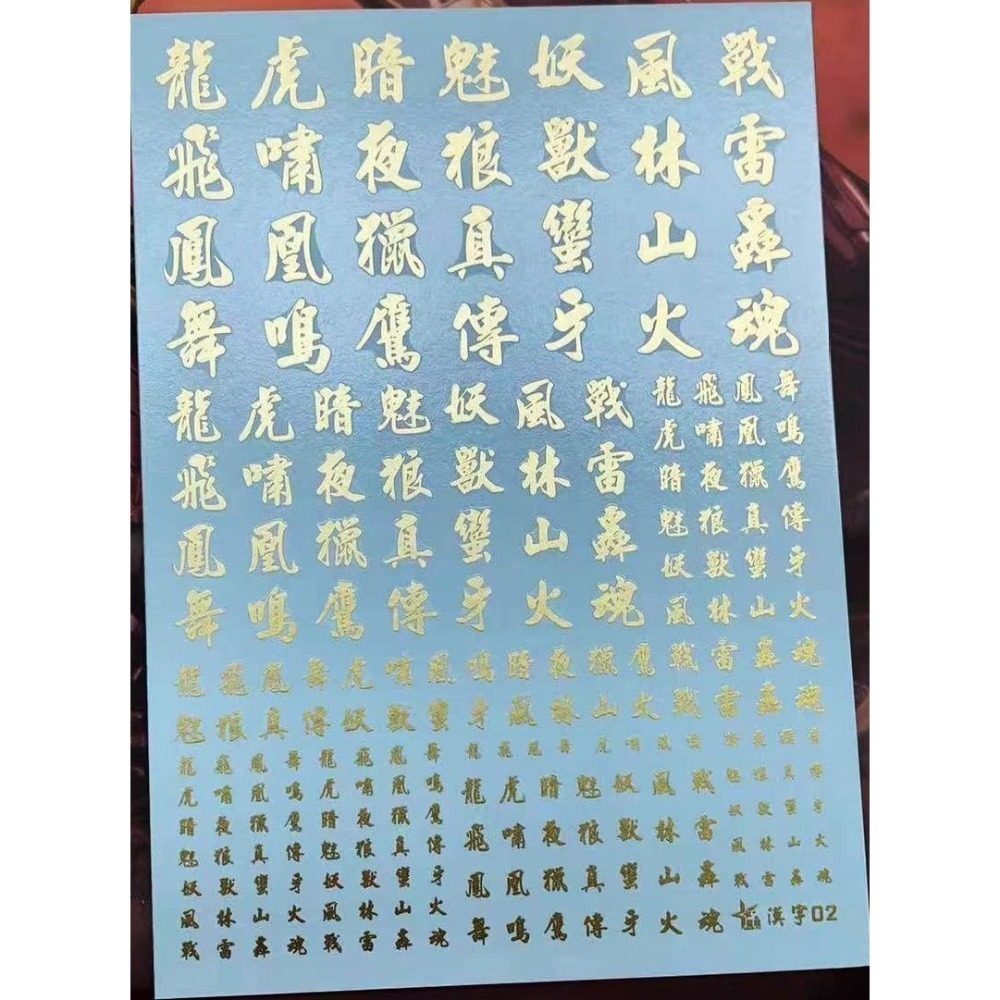 龍虎暗魅妖風戰
飛嘯夜狼獸林雷
鳳凰獵真蠻山轟
舞鳴鷹傳牙火魂
龍虎暗魅妖風戰
飛嘯夜狼獸林雷
鳳凰獵真蠻山轟
舞鳴鷹傳牙火魂
龍飛鳳舞
虎嘯凰鳴
暗夜獵鷹
魅狼真傳
妖獸蠻牙
風林山火
龍飛鳳舞虎嘯凰鳴暗夜獵鷹戰雷轟魂
魅狼真傳妖獸蠻牙風林山火戰雷轟魂
龍飛鳳舞龍飛鳳舞
虎嘯凰鳴虎嘯凰鳴
暗夜獵鷹暗夜獵鷹
魅狼真傳魅狼真傳
妖獸蠻牙妖獸蠻牙
風林山火風林山火
戰雷轟魂戰雷轟魂
龍飛鳳舞虎嘯凰鳴暗夜獵鷹
龍虎暗魅妖風戰
飛嘯夜狼獸林雷
鳳凰獵真蠻山轟
舞鳴鷹傳牙火魂
魅狼真傳
妖獸蠻牙
風林山火
戰雷轟魂
漢字02